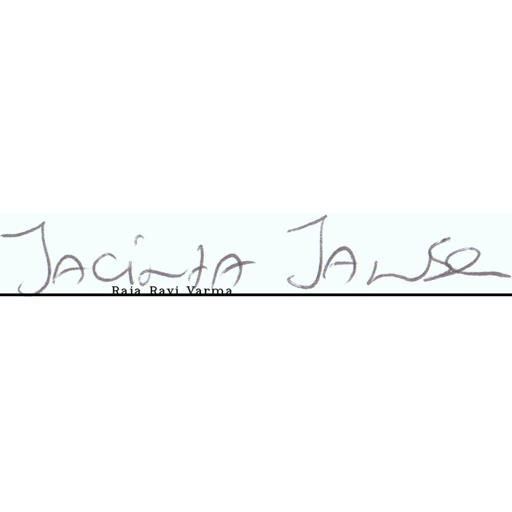 Jacinta Jansen
Raja Ravi Varma